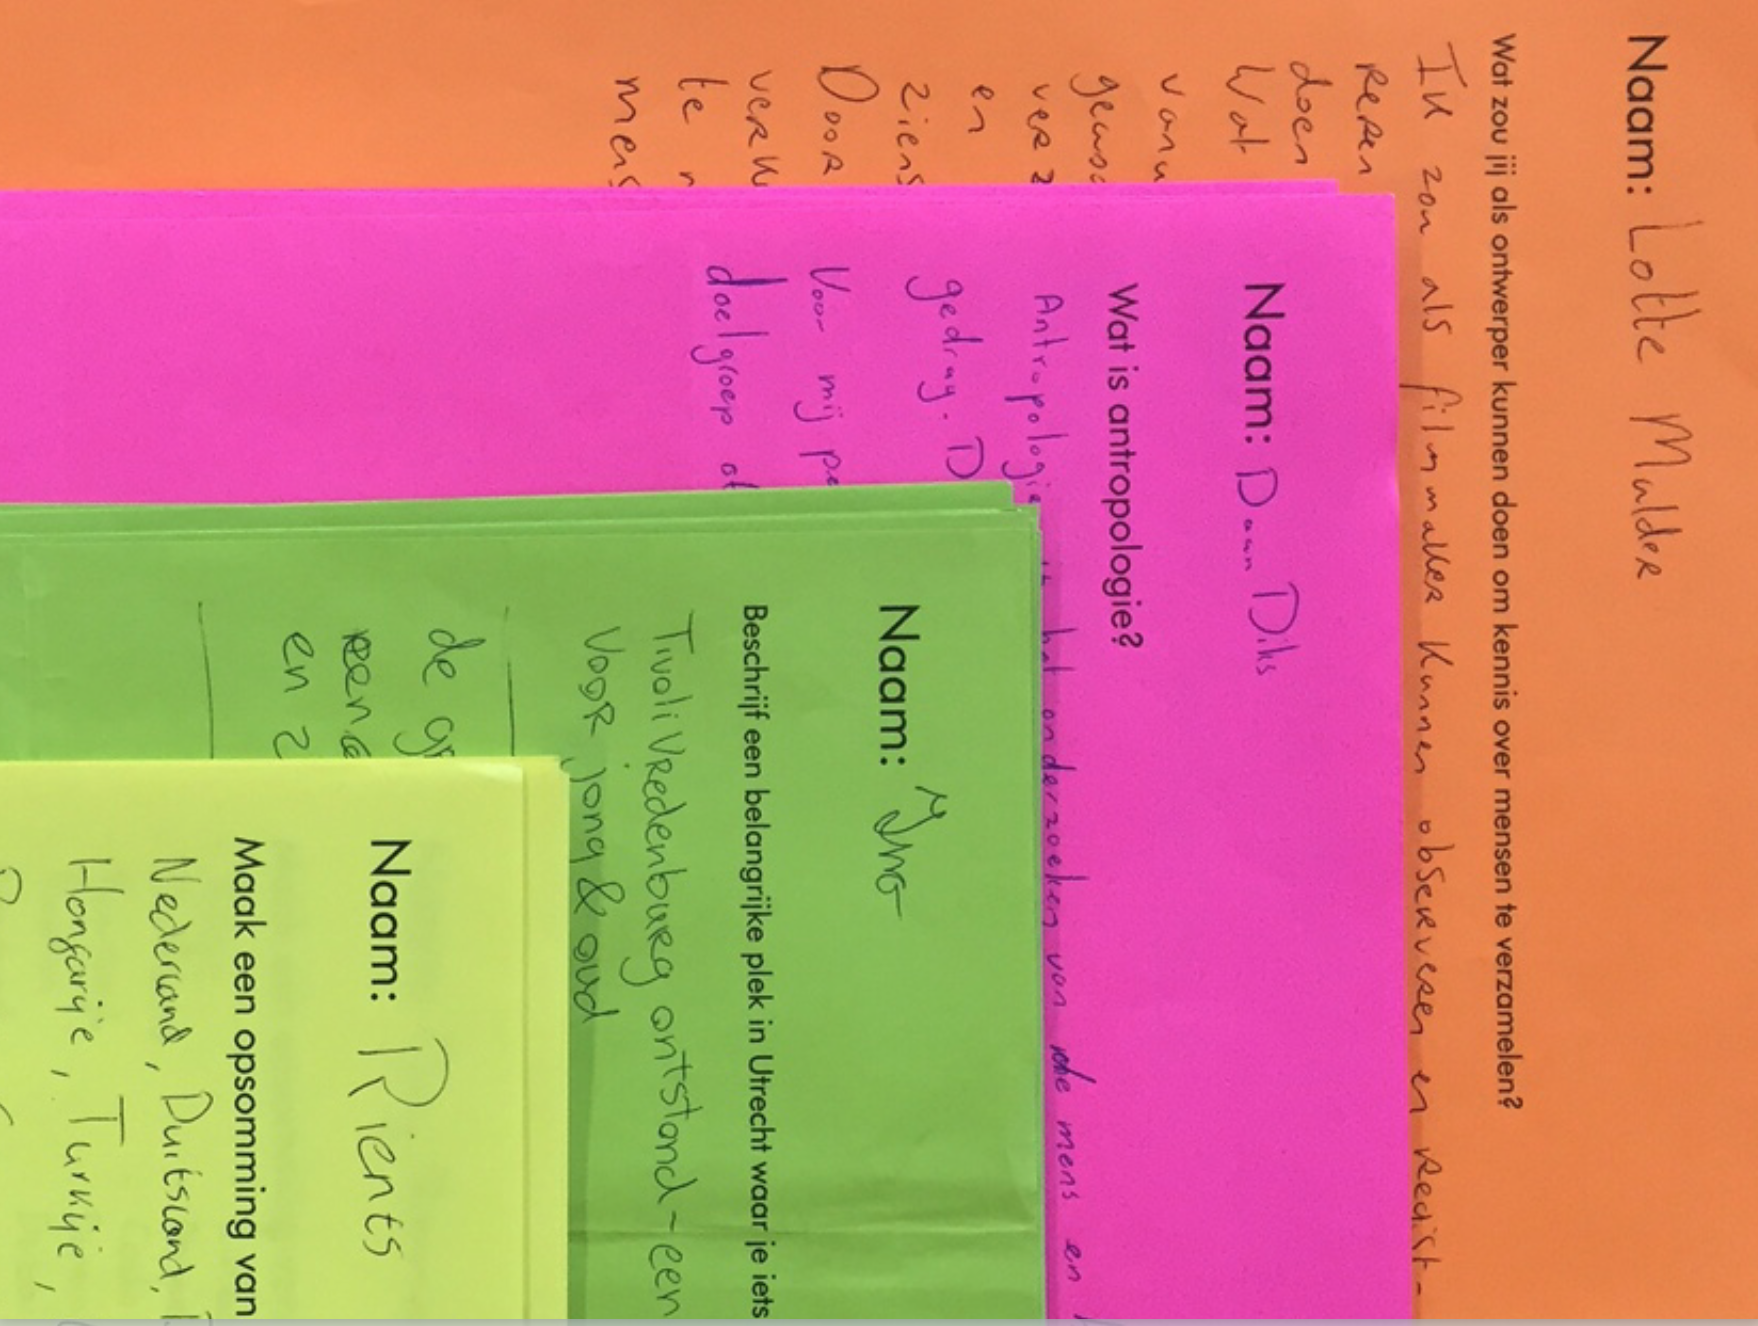 Naam: Lotte Mulder
Wat zou jij als ontwerper kunnen doen om kennis over mensen te verzamelen?
Ik zou als filmmaker kunnen observeren en regist-
reren
doen
Wat
vanu
gewso
verz
en
ziens
Door
verk
te
mens
Naam: Daan Diks
Wat is antropologie?
Antropologie het onderzoeken van de mens en
gedrag. D
Voor mij pe
doelgroep
Naam:
Beschrijf een belangrijke plek in Utrecht waar je iets
TivoliVredenburg ontstond - een
VOOR jong & oud
de gr
en z
Naam: Rients
Maak een opsomming van
Nederland, Duitsland,
Hongarije, Turkije,